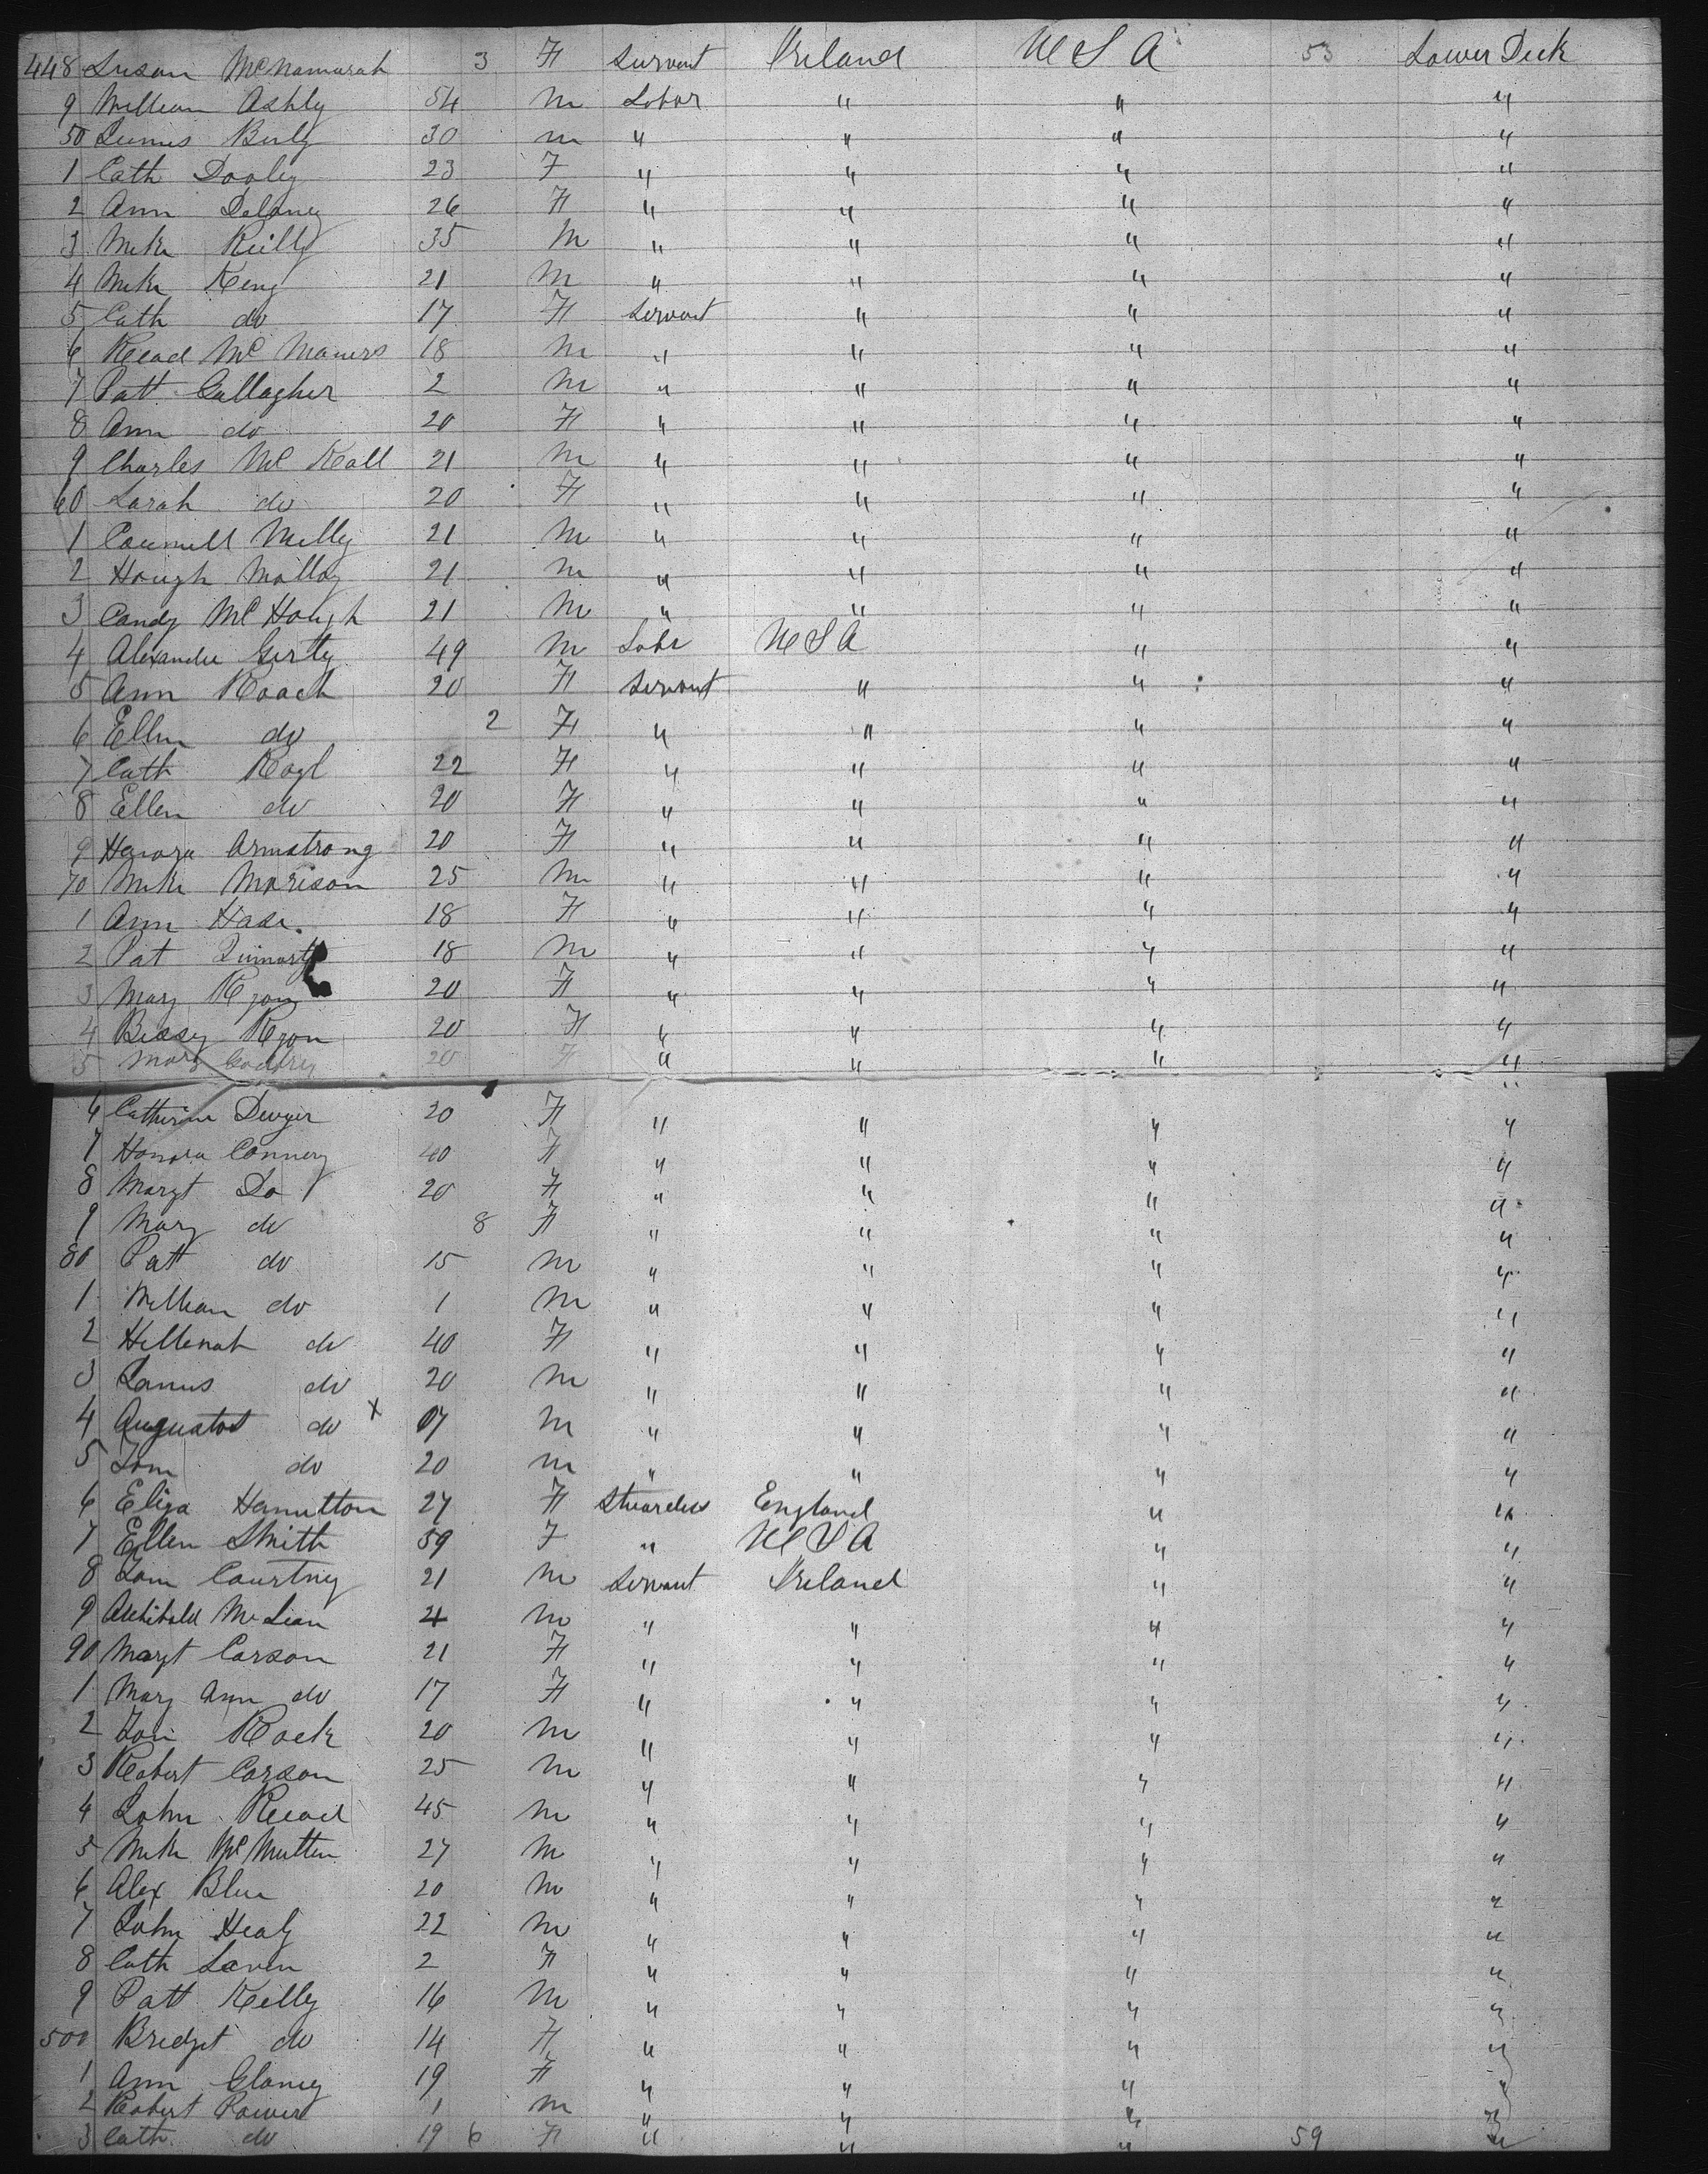 448 Susan McNamarah 3 F Servant Ireland U S A 53 Lower Deck
9 William Ashly 54 M Labor " " "
50 James 30 M " " " "
1 Cath Dooley 23 F " " " "
2 Ann Delaney 26 F " " " "
3 Mike Reilly 35 M " " " "
4 Mike Keny 21 M " " " "
5 Cath do 17 F Servant " " "
6 Mc 18 M " " " "
7 Patt Gallagher 2 M " " " "
8 Ann do 20 F " " " "
9 Charles Mc Kall 21 M " " " "
60 Sarah do 20 F " " " "
1 Connell Melly 21 M " " " "
2 Hough Molloy 21 M " " " "
3 Candy Mc Hough 21 M " " " "
4 Alexander Gerty 49 M Labr U S A " "
5 Ann Roach 20 F Servant " " "
6 Ellen do 2 F " " " "
7 Cath 22 F " " " "
8 Ellen do 20 F " " " "
9 Honora Armstrong 20 F " " " "
70 Mike Morison 25 M " " " "
1 Ann 18 F " " " "
2 Pat 18 M " " " "
3 Mary Ryan 20 F " " " "
4 Bessy Ryan 20 F " " " "
5 Mary Godfrey 20 F " " " "
6 Catherine Dwyer 20 F " " " "
7 Honora Connery 40 F " " " "
8 Margt Do 20 F " " " "
9 Mary do 8 F " " " "
80 Patt do 15 M " " " "
1 William do 1 M " " " "
2 Hellenah do 40 F " " " "
3 James do 20 M " " " "
4 Augustos do x 07 M " " " "
5 Tom do 20 M " " " "
6 Eliza Hamutton 27 F Stuardess England " "
7 Ellen Smith 59 F " U S A " "
8 Tom Courtney 21 M Servant Ireland " "
9 Archibald McLean 21 M " " " "
90 Margt Carson 21 F " " " "
1 Mary Ann do 17 F " " " "
2 Rock 20 M " " " "
3 Robert Carson 25 M " " " "
4 John 45 M " " " "
5 Mike Mc Mutten 27 M " " " "
6 Alex Blue 20 M " " " "
7 John Healy 22 M " " " "
8 Cath Laven 2 F " " " "
9 Patt Kelly 16 M " " " "
500 Bridget do 14 F " " " "
1 Ann Clancy 19 F " " " "
2 Robert Power 1 M " " " "
3 Cath do 19 6 F " " " 59 "